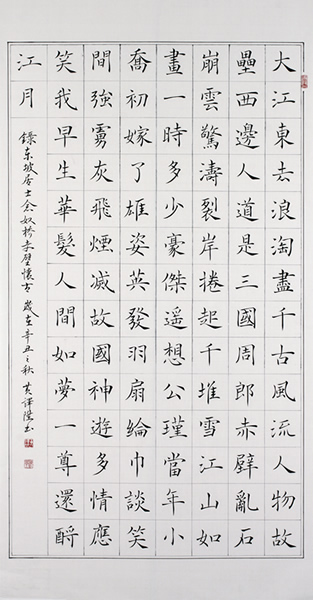 大江東去浪淘盡千古風流人物故
壘西邊人道是三國周郎赤壁亂石
崩雲驚濤裂岸捲起千堆雪江山如
畫一時多少豪傑遙想公瑾當年小
喬初嫁了雄姿英發羽扇綸巾談笑
間強虜灰飛煙滅故國神遊多情應
笑我早生華髮人間如夢一尊還酹
江月
錄東坡居士念奴嬌赤壁懷古 歲在辛丑之秋 書